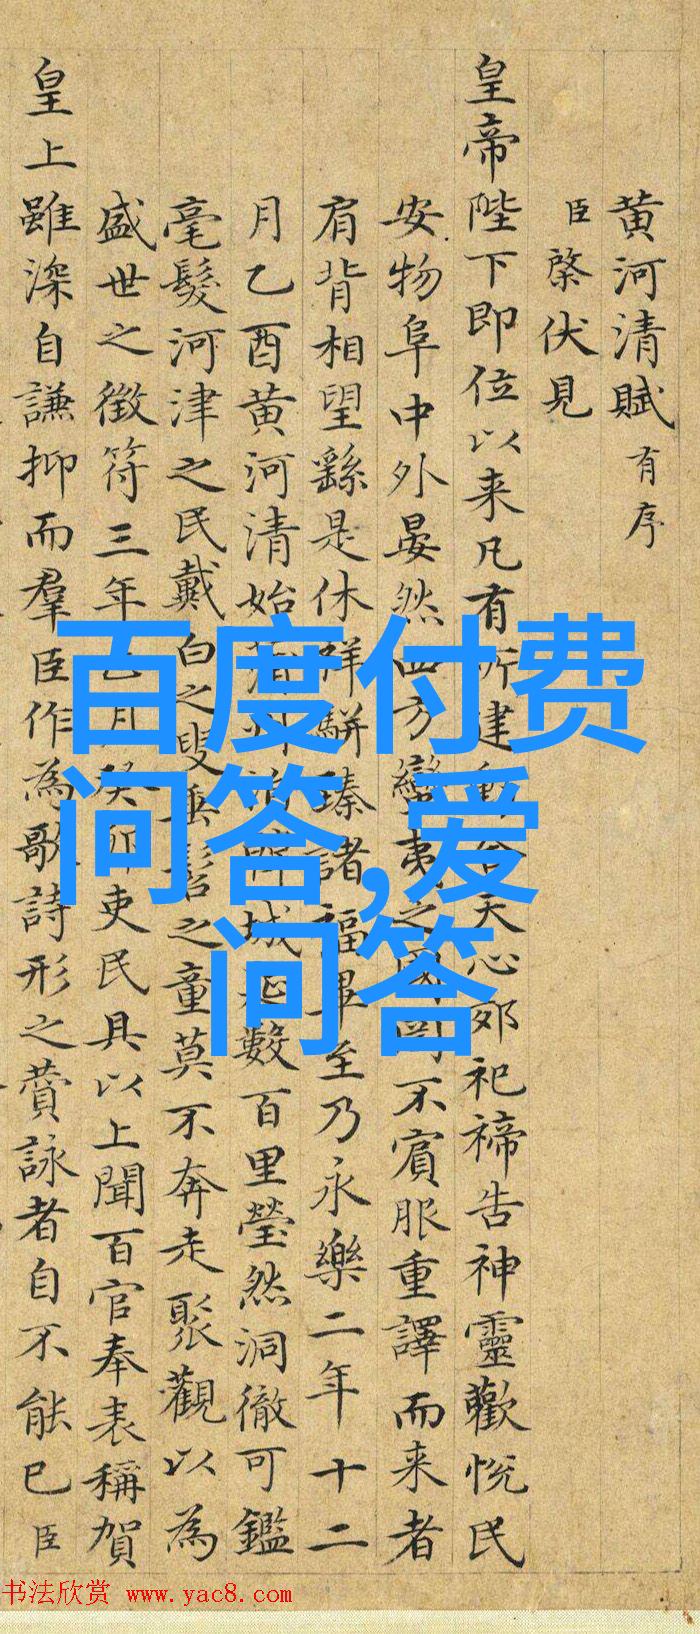 黄河清賦有序
臣棨伏見
皇帝陛下即位以来凡有所建動合天心郊祀禘告神靈歡悦民
安物阜中外晏然四方蠻夷之国罔不賓服重譯而来者
肩背相望繇是休祥駢臻諸福畢至乃永樂二年十二
月乙酉黄河清始蒲州城延數百里瑩然洞徹可鑑
毫髮河津之民戴白之叟垂髫之童莫不奔走聚觀以為
盛世之徵符三年乙月癸卯吏民具以上聞百官奉表稱賀
皇上雖深自謙抑而羣臣作為歌詩形之賛詠者自不能已臣
百度付费
问答,爱
问答
书法欣赏 www.yac8.com